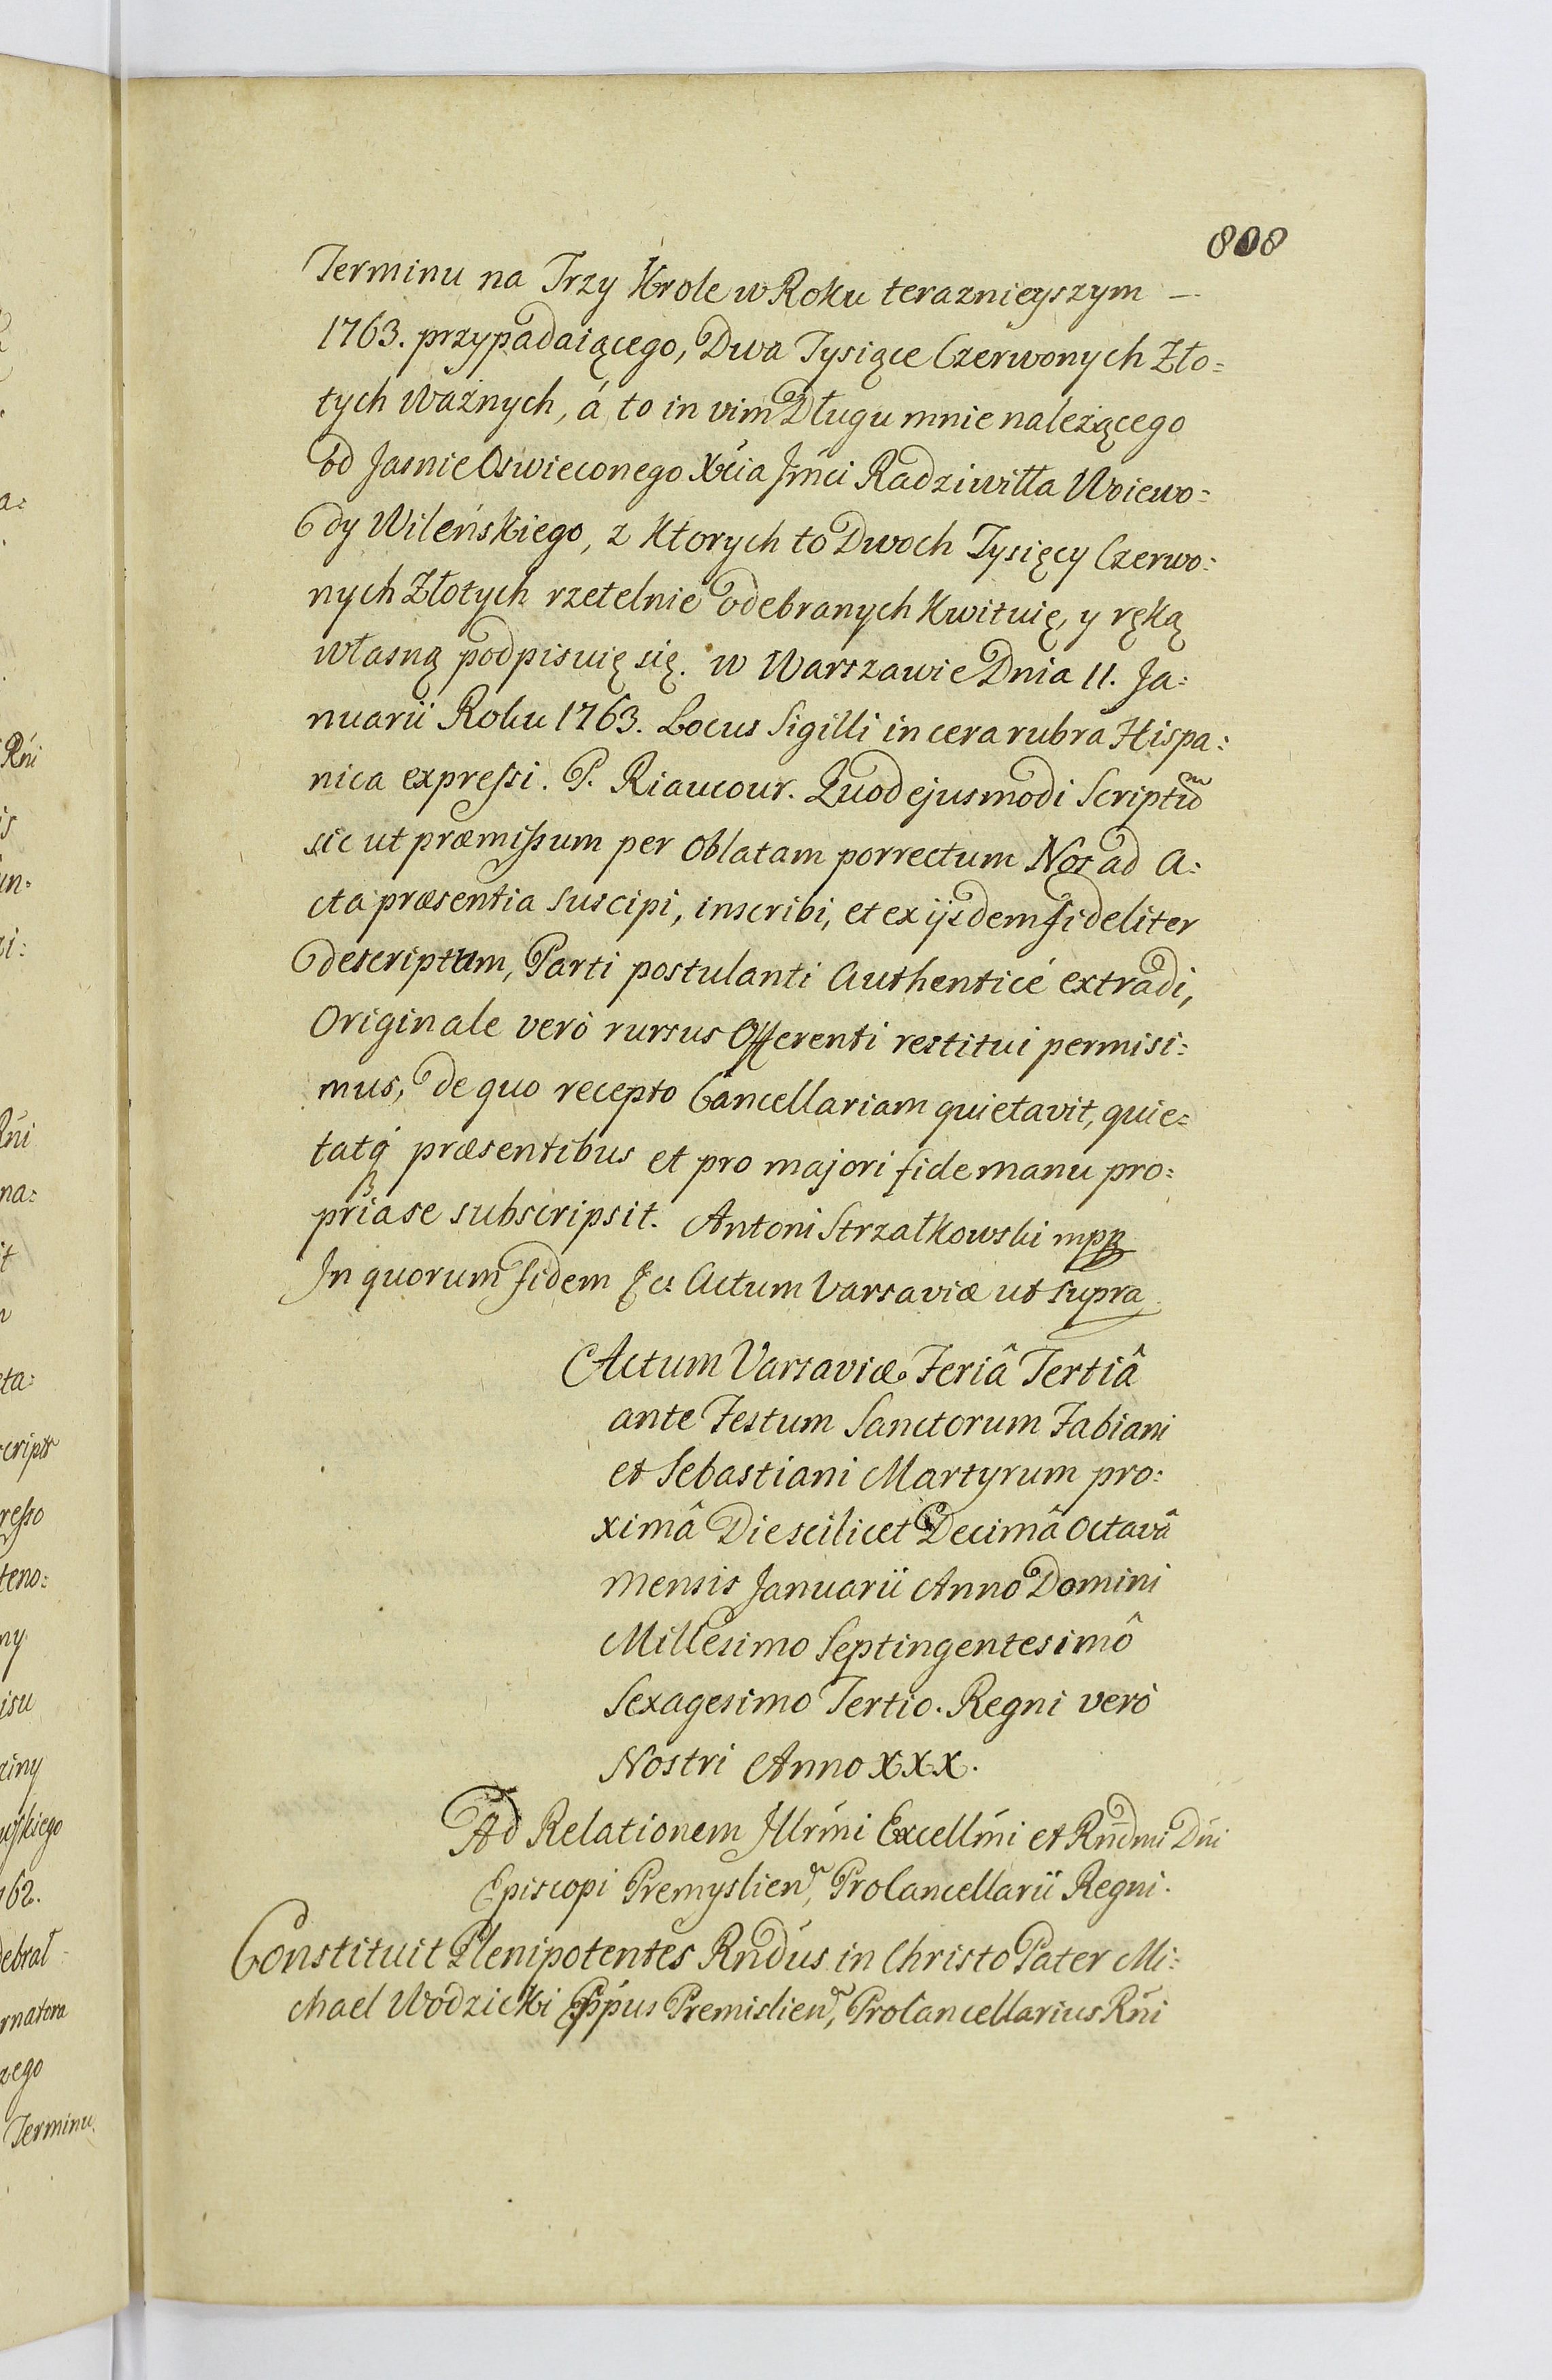 808
Terminu na Trzy Krole w Roku teraznieyszym —
1763. przypadaiącego, Dwa Tysiące Czerwonych Zło:
tych Ważnych, á to in vim Długu mnie należącego
od Jasnie Oswieconego Xcia Jmci Radziwiłła Woiewo:
dy Wileńskiego, z Ktorych to Dwoch Tysięcy Czerwo:
nych Złotych rzetelnie odebranych Kwituię, y ręką
własną podpisuię się. w Warszawie Dnia 11. Ja:
nuarii Roku 1763. Locus Sigilli in cera rubra Hispa:
nica expressi. P. Riaucour. Quod ejusmodi Scriptũ
sic ut præmissum per Oblatam porrectum Nos ad A:
cta præsentia suscipi, inscribi, et ex ijsdem fideliter
descriptum, Parti postulanti Authenticé extradi,
Originale verò rursus Offerenti restitui permisi:
mus, de quo recepto Cancellariam quietavit, quie:
tatq́ præsentibus et pro majori fide manu pro:
pria se subscripsit. Antoni Strzałkowski mpp
In quorum fidem &c: Actum Varsaviæ ut supra
Actum Varsaviæ Feriâ Tertiâ
ante Festum Sanctorum Fabiani
et Sebastiani Martyrum pro:
ximâ Die scilicet Decimâ Octavâ
mensis Januarii Anno Domini
Millesimo Septingentesimô
Sexagesimo Tertio. Regni verò
Nostri Anno XXX.
Ad Relationem Illrmi Excellmi et Rndmi Dni
Episcopi Premyslien, ProCancellarii Regni.
Constituit Plenipotentes Rndus in Christo Pater Mi:
chael Wodzicki Eppus Premislien, ProCancellarius Rni
Rni
Rni
resso
teno:
isu
162.
debrał
Terminu